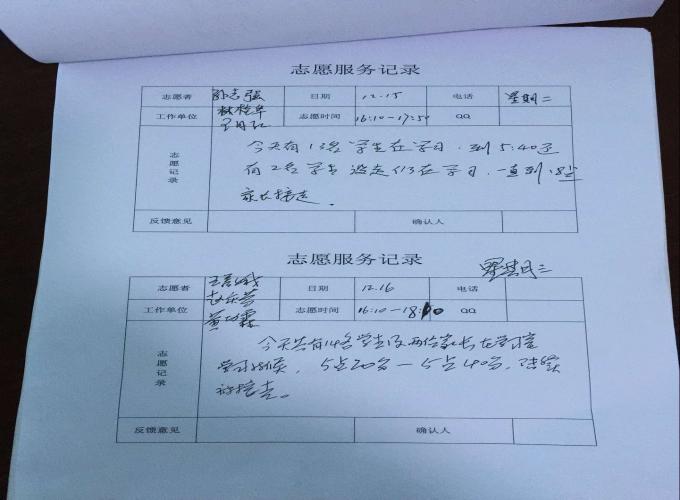 志愿服务记录
志愿者 孙志强 日期 12.15 电话 星期二
工作单位 志愿时间 16:10-17:50 QQ
志愿记录
今天有13名学生在学习,到5:40还
有2名学生没走仍在学习,一直到
家长接走。
反馈意见 确认人
志愿服务记录
星期三
志愿者 日期 12.16 电话
工作单位 志愿时间 16:10-18:00 QQ
志愿记录
今天共有14名学生及两位家长在学习室
学习 5点20分-5点40分,陆续
被接走。
反馈意见 确认人